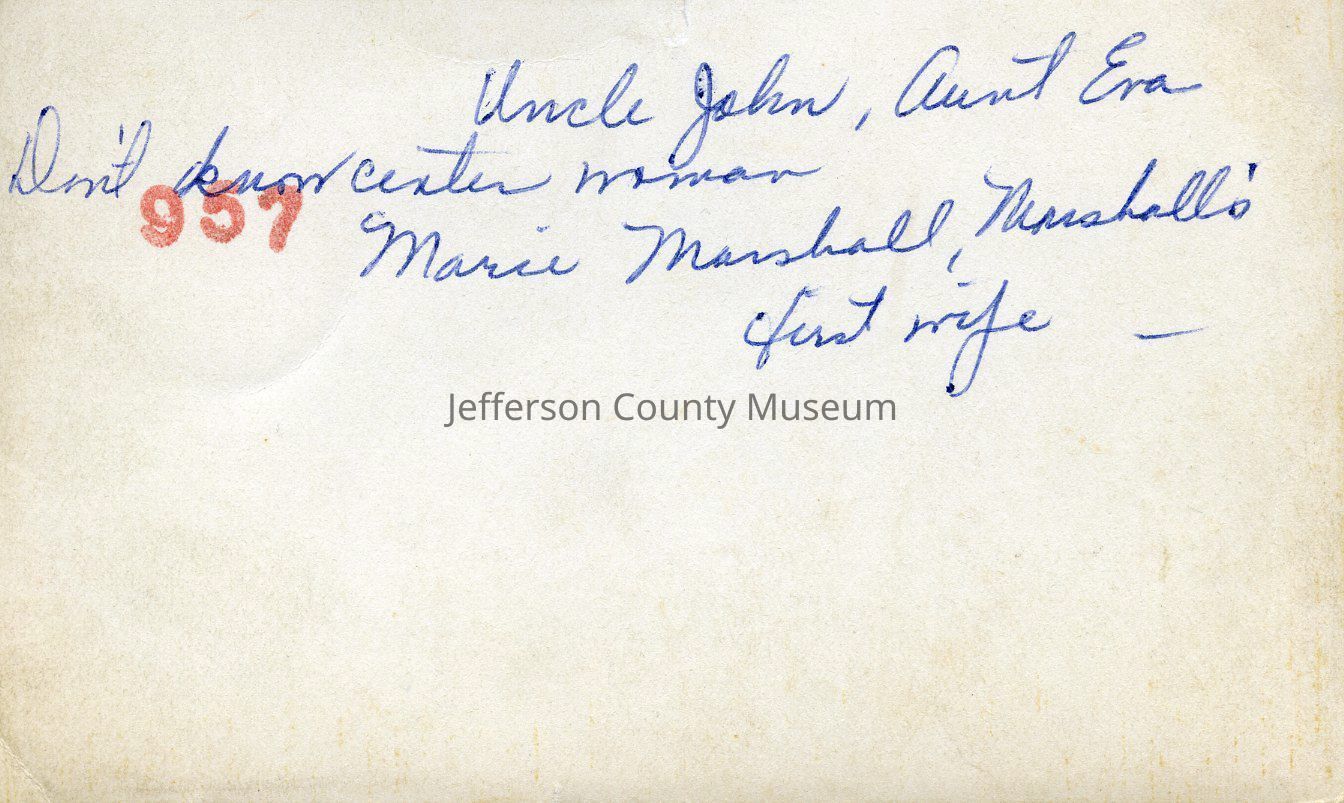 Uncle John, Aunt Eva
Don't know center woman
957
Marie Marshall, Marshall's
first wife —
Jefferson County Museum